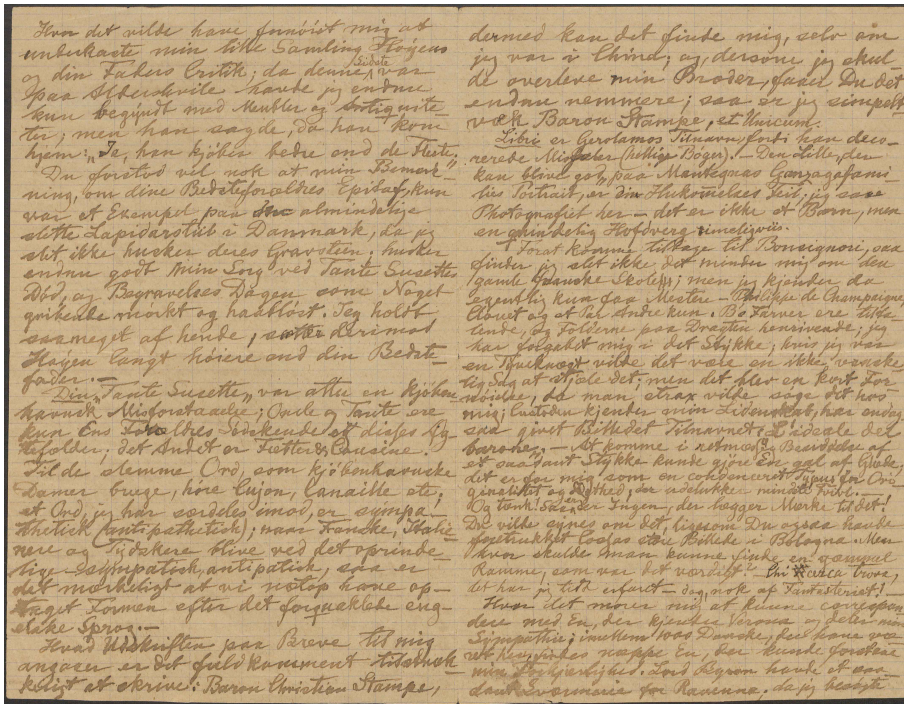 Hvor det vilde have fornöiet mig at
underkaste min lille Samling Höyens
og din Faders Critik; da denne sidste var
paa Alderslvile havde jeg endnu
kun begyndt med Meubler og Antiquite
ter; men han sagde, da han kom
hjem: „Ja, han kjöber bedre end de fleste."
Du forstod vel nok at min Bemærk
ning, om dine Bedsteforældres Epitaf, kun
var et Exempel paa den almindelige
slette Lapidarstil i Danmark, da jeg
slet ikke husker deres Gravsteen; husker
endnu godt min Sorg ved Tante Susettes
Död, og Begravelses Dagen som Noget
gribende mörkt og haablöst. Jeg holdt
saameget af hende, sætter derimod
Höyen langt höiere end din Bedste
fader. —
Din „Tante Susette" var altsaa en kjöben
havnsk Misforstaaelse; Onkle og Tante ere
kun Ens Forældres Sedskende og disses Æg
tefolder; det Andet er Fætter & Cousine.
Til de slemme Ord, som kjöbenhavnske
Damer bruge, höre Cujon, Canaille etc;
et Ord, jeg har særdeles imod, er sympa-
thetisk (antipathetisk); naar Franske, Italie
nere og Tydskere blive ved det oprinde
lige sympatisk, antipatisk, saa er
det mærkeligt at vi netop have op-
taget Formen efter det forquaklede eng-
elske Sprog. —
Hvad Udskriften paa Breve til mig
angaaer er det fuldkomment tilstræk
keligt at skrive: Baron Christian Stampe,
dermed kan det finde mig, selv om
jeg var i China; og, dersom jeg skul
de overleve min Broder, faaer Du det
endnu nemmere; saa er jeg simpelt
væk Baron Stampe, et Unicum.
Libri er Gerolamos Tilnavn, fordi han deco-
rerede Missaler (hellige Böger). — Den Lille, der
kan blive got, paa Mantegnas Gonzagafami-
lies Portrait, er din Hukommelses Feil; jeg saae
Photografiet her — det er ikke et Barn, men
en quindelig Hofdverg rimeligviis.
For at komme tilbage til Bonsignori, saa
finder jeg slet ikke det minder mig om den
gamle franske Skole; men jeg kjender da
egentlig kun faa Mestere — Philippe de Champaigne,
Clouet og et Par Andre kun. Da Farver ere tilta-
lende, og Folderne paa Dragten henrivende; jeg
har forgabet mig i det Stykke, hvis jeg var
en Tyveknægt vilde det være en ikke vanske
lig Sag at stjæle det; men det blev en kort For
nöielse, da man strax vilde söge det hos
mig; Custoden kjender min Lidenskab, har endog
saa givet Billedet Tilnavnet: L'ideale del
barone. — At komme i retmæssig Besiddelse af
et saadant Stykke kunde gjöre En gal af Glæde,
det er for mig som en condenseret Typus for Ori
ginalitet og Ægthed, der udelukker mindste Tvivl. —
Og tænk! Saa er der Ingen, der lægger Mærke til det!
Du vilde synes om det, ligesom Du ogsaa havde
foretrukket Costas store Billede i Bologna. Men
hvor skulde man kunne finde en gammel
Ramme, som var det værdigt? Chi cerca trova,
det har jeg tidt erfaret — dog, nok af Fantasteriet! —
Hvor det morer mig at kunne correspon
dere med En, der kjender Verona og deler min
Sympathie; imellem 1000 Danske, der have væ
ret her, findes næppe En, der kunde forstaae
min Forkjærlighed. Lord Byron havde et saa
dant Sværmerie for Ravenna; da jeg besögte